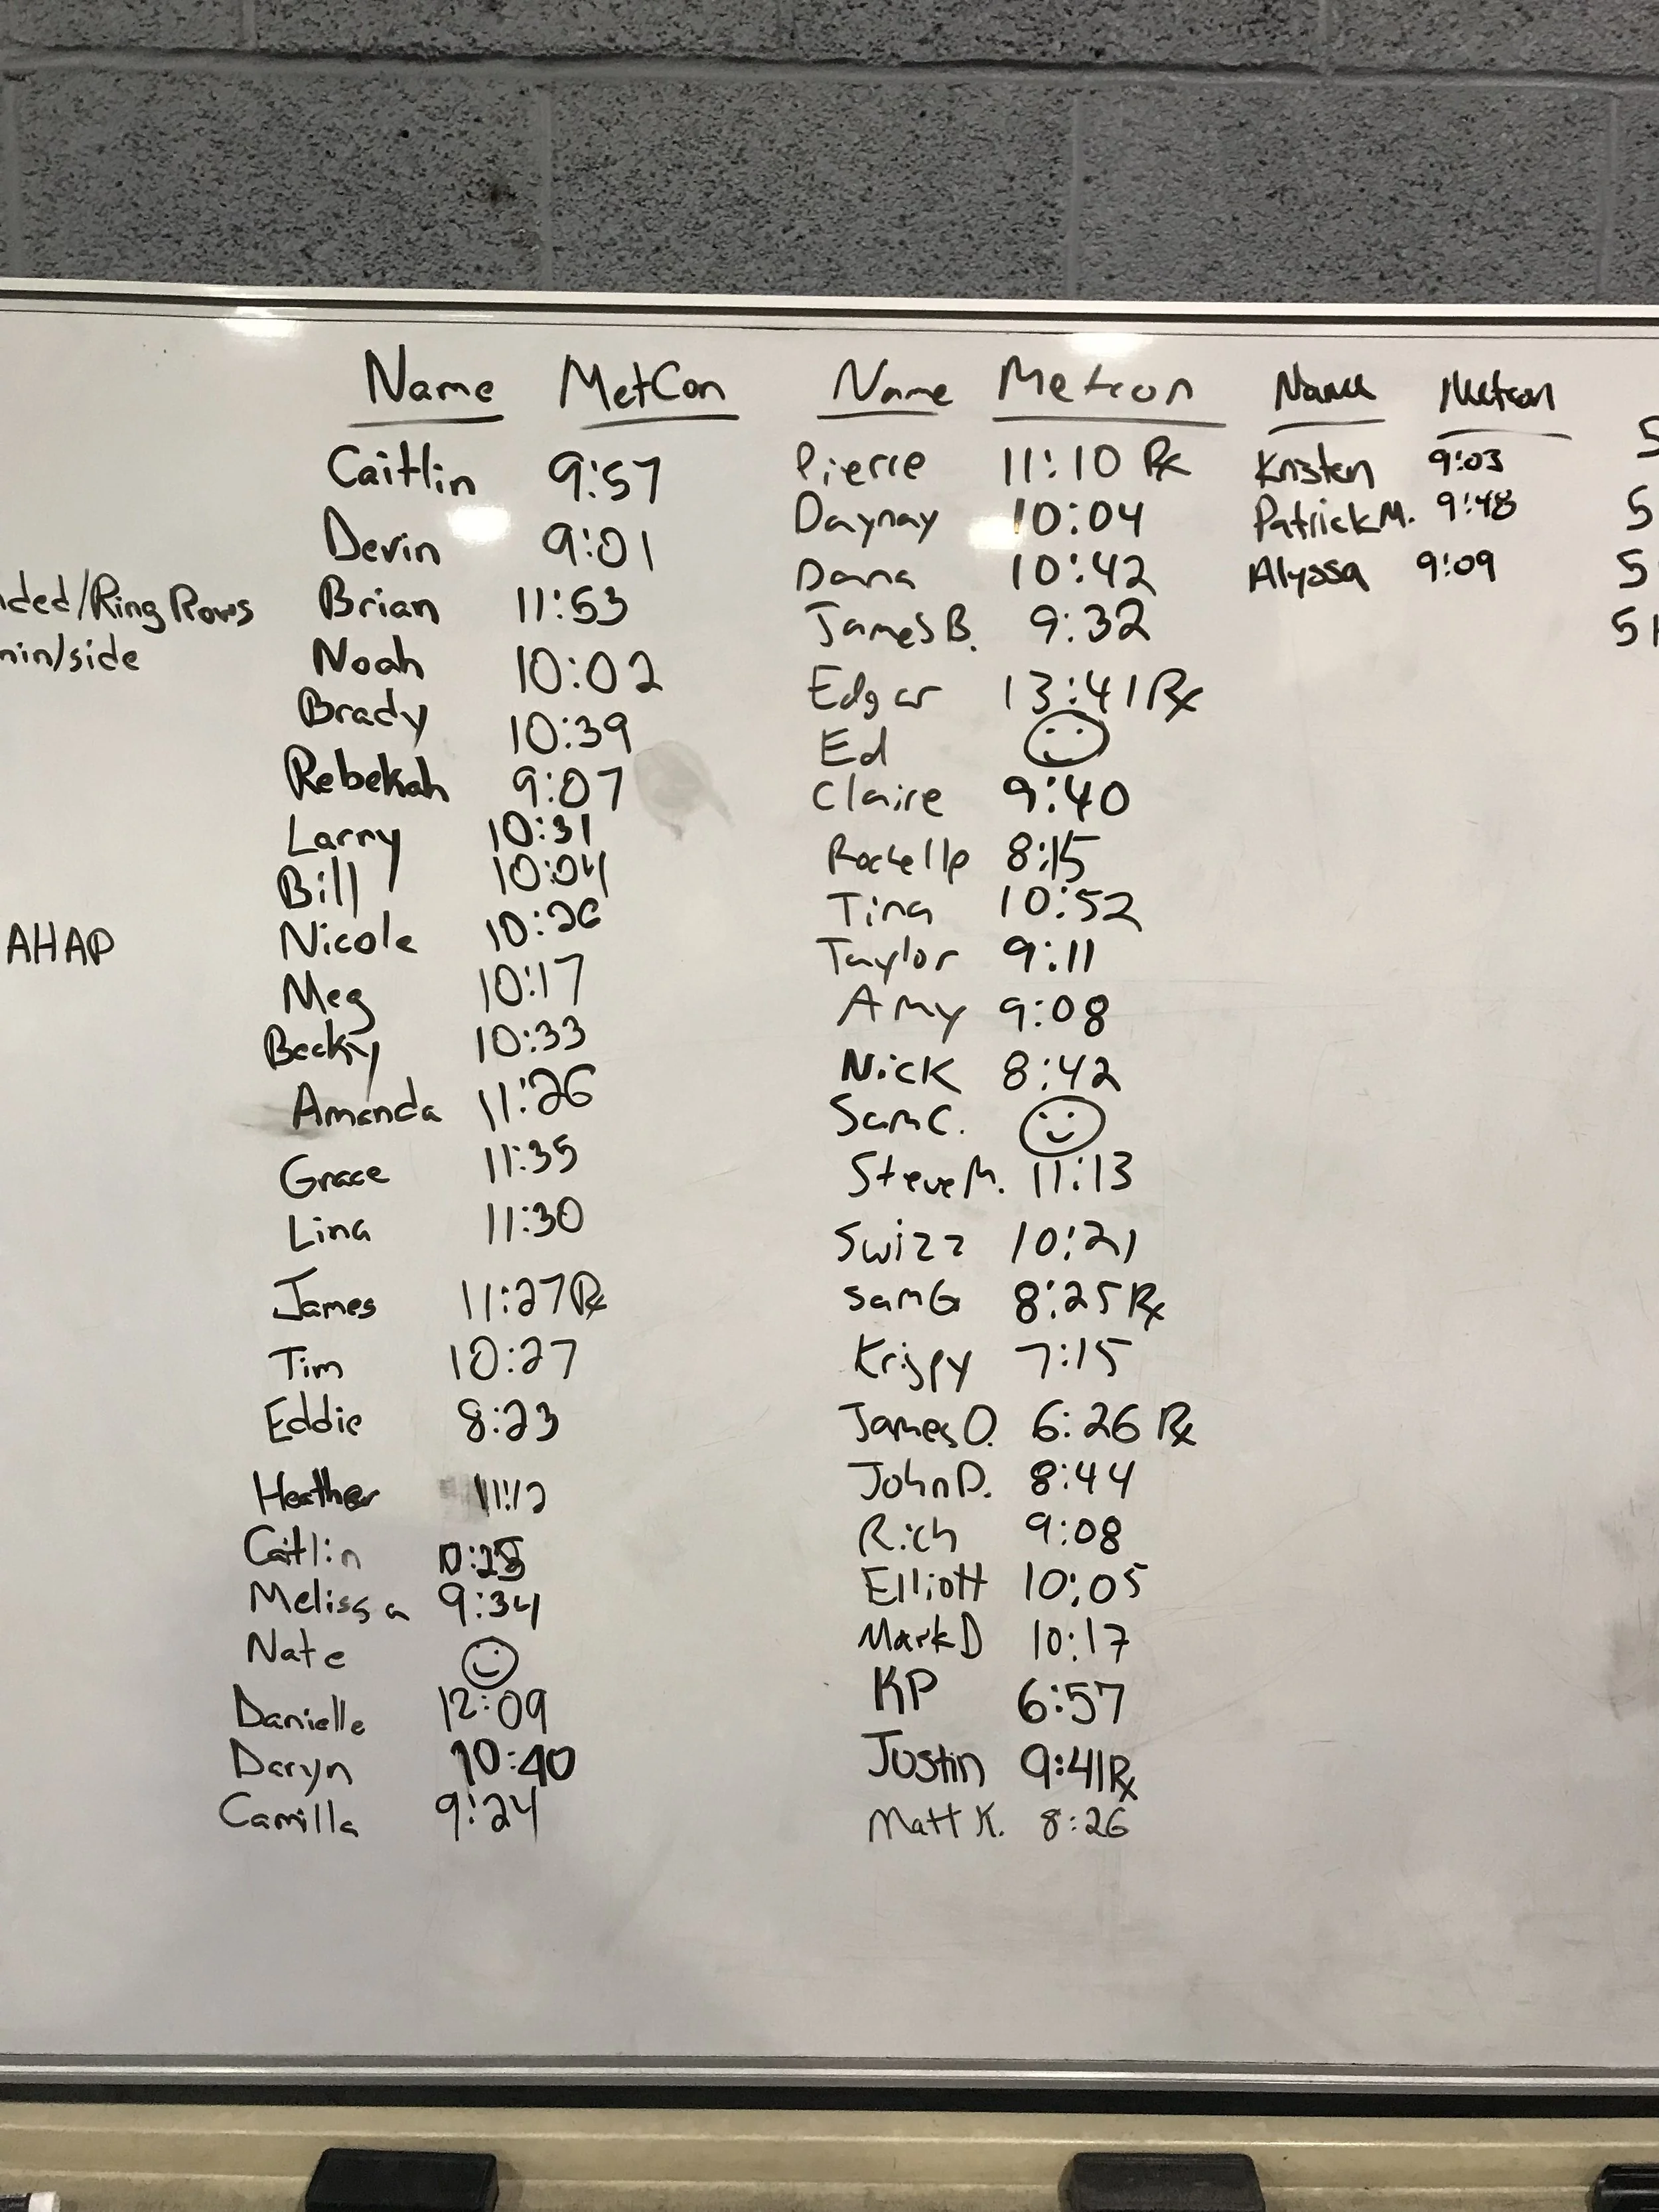 Name MetCon
Caitlin 9:57
Devin 9:01
Brian 11:53
Noah 10:02
Brady 10:39
Rebekah 9:07
Larry 10:31
Bill 10:04
Nicole 10:26
Meg 10:17
Becky 10:33
Amanda 11:26
Grace 11:35
Lina 11:30
James 11:27 Rx
Tim 10:27
Eddie 8:23
Heather 11:12
Caitlin
Melissa 9:34
Nate
Danielle 12:09
Daryn 10:40
Camilla 9:24
Name Metcon
Pierre 11:10 Rx
Daynay 10:04
Dana 10:42
James B. 9:32
Edgar 13:41 Rx
Ed
Claire 9:40
Rochelle 8:15
Tina 10:52
Taylor 9:11
Amy 9:08
Nick 8:42
Sam C.
Steve M. 11:13
Swizz 10:21
Sam G 8:25 Rx
Krispy 7:15
James O. 6:26 Rx
John D. 8:44
Rich 9:08
Elliott 10:05
Mark D 10:17
KP 6:57
Justin 9:41 Rx
Matt K. 8:26
Name Metcon
Kristen 9:03
Patrick M. 9:48
Alyssa 9:09
ded/Ring Rows
min/side
AHAP
5
5
5